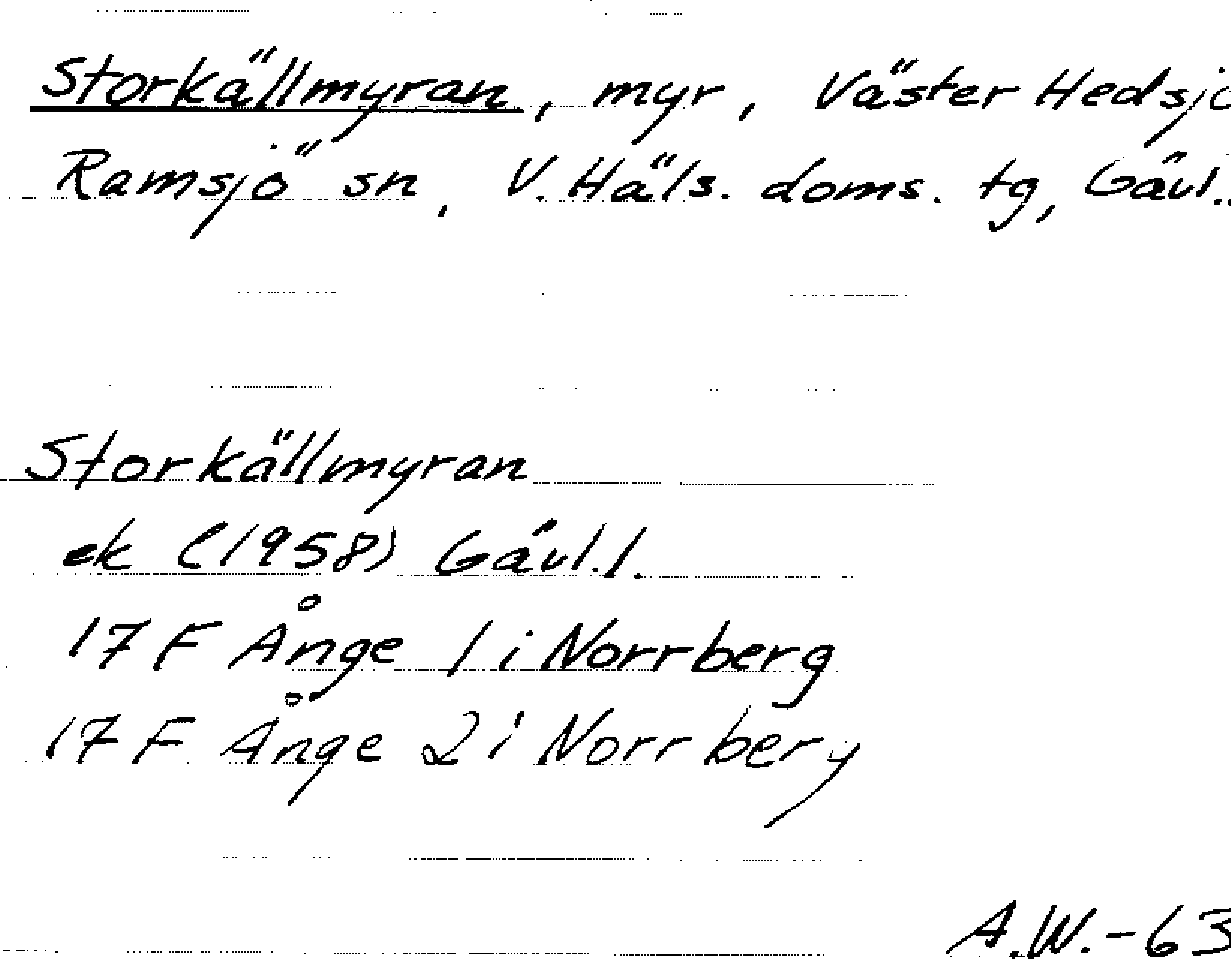 Storkällmyran, myr, Väster Hedsjö
Ramsjö sn, V. Häls. doms. tg, Gävl..
Storkällmyran
ek (1958) Gävl.l.
17 F Ånge 1 i Norrberg
17 F Ånge 2 i Norrberg
A.W.-63